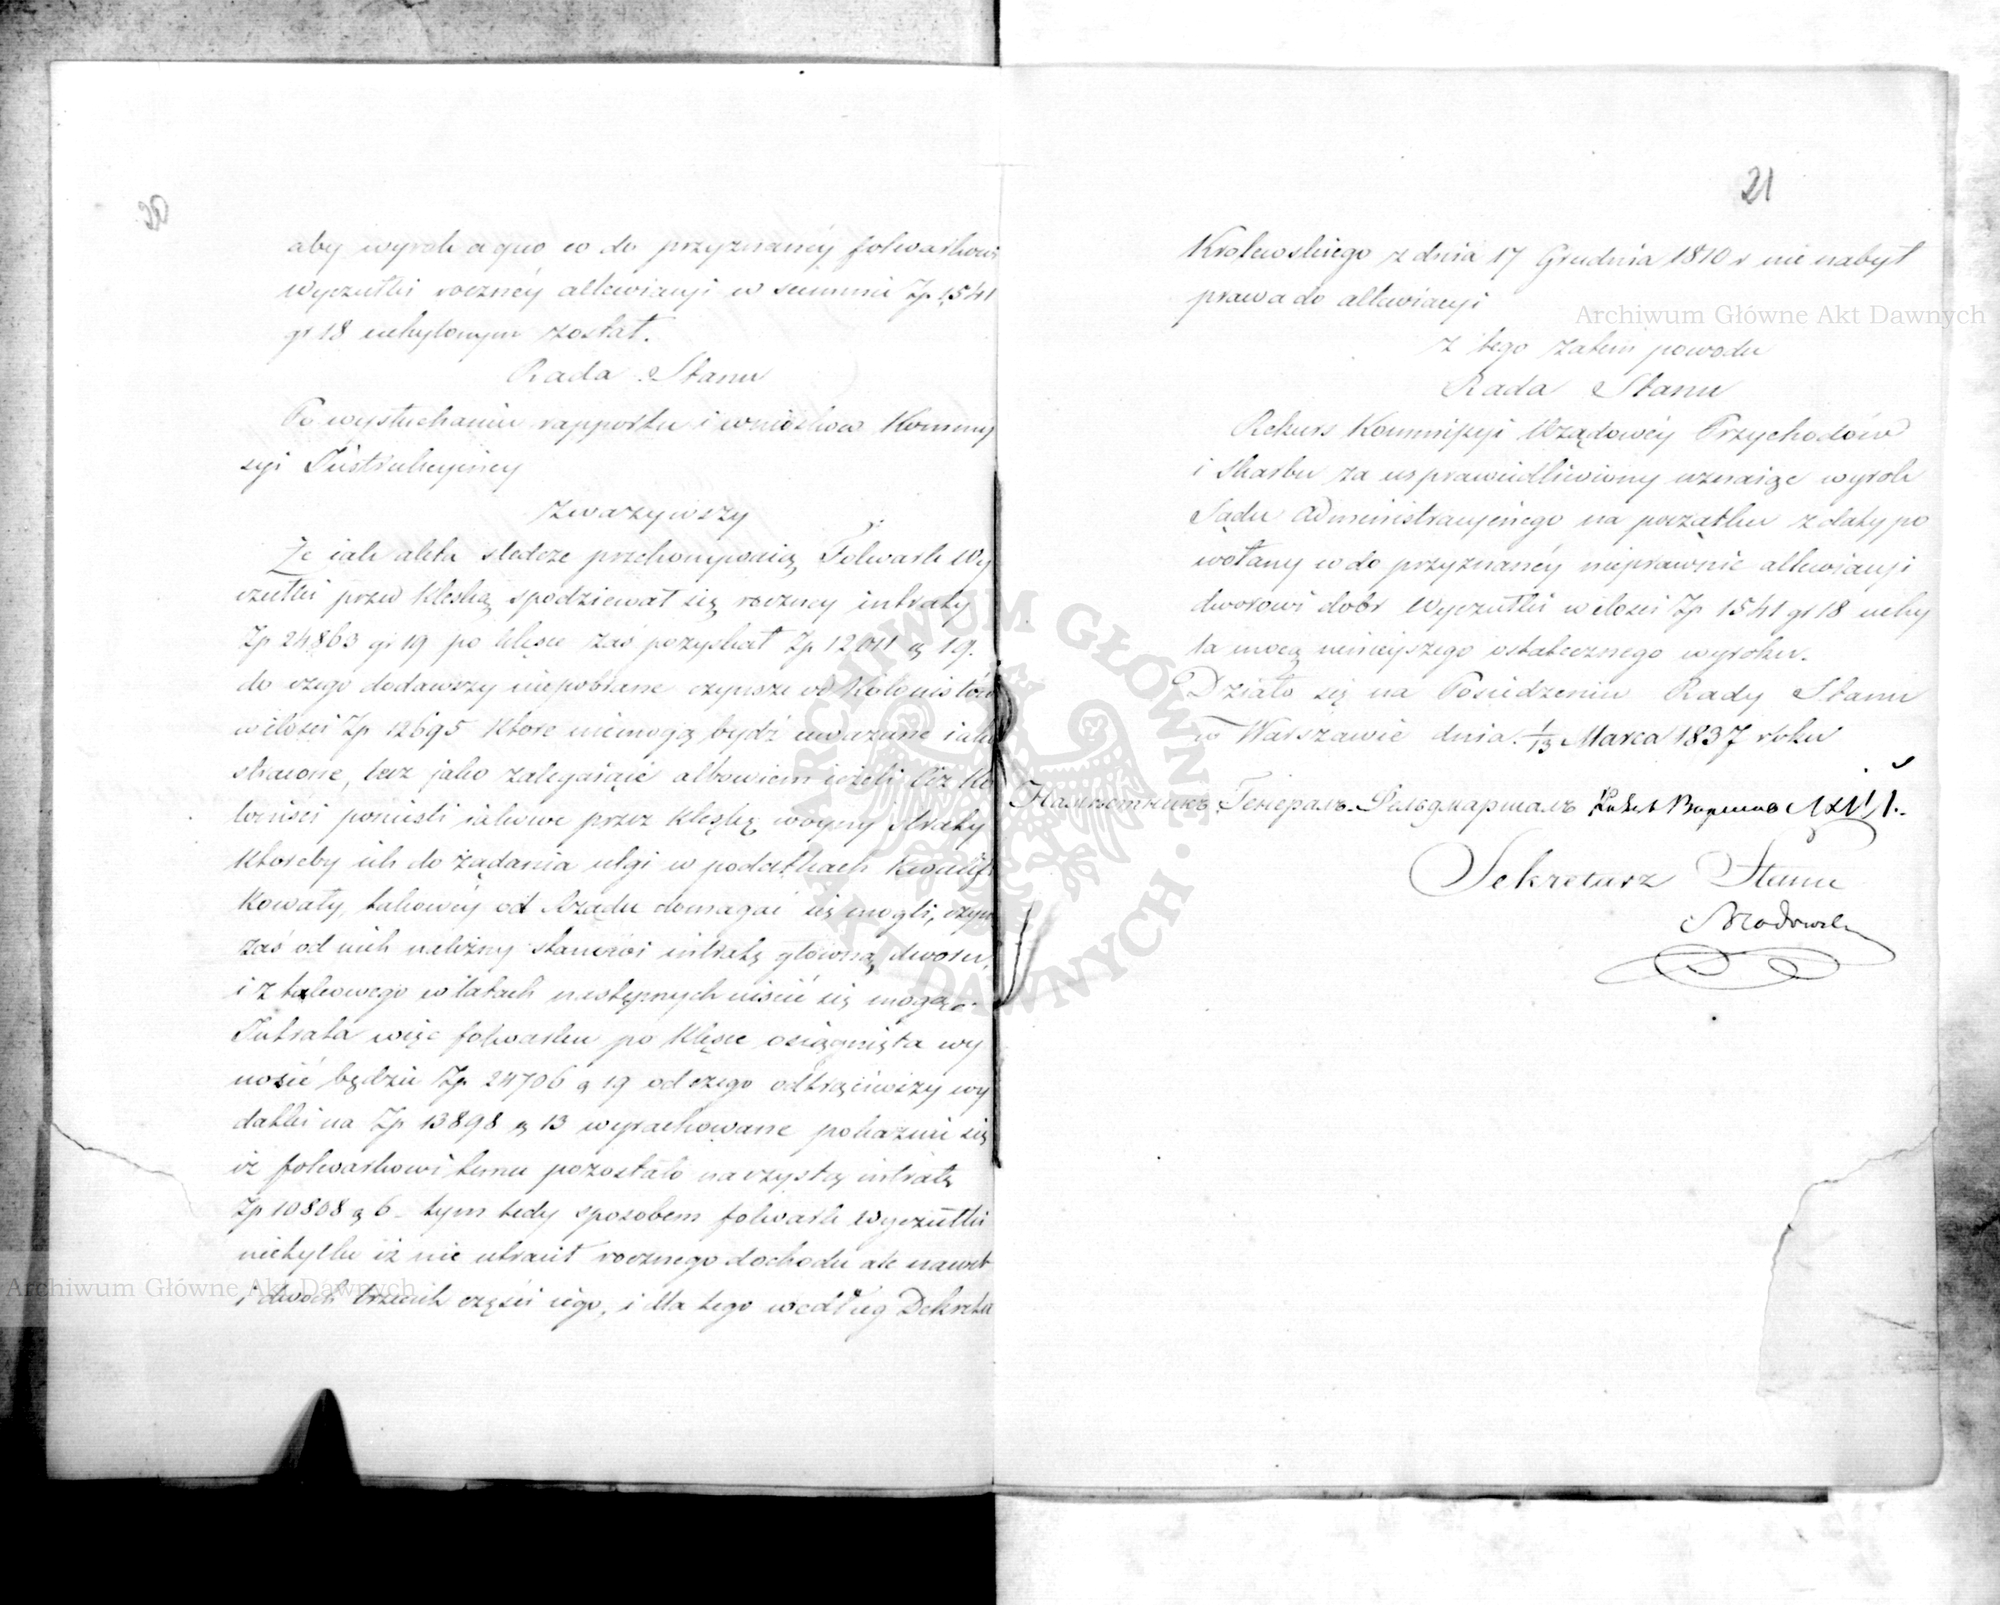 20
aby wyrok a quo co do przyznanéy folwarkowi
Wyczułki rocznéy allewiacyi w summie Zp 1541
gr 18 uchylonym został.
Rada Stanu
Po wysłuchaniu rapportu i wniosków Kommis
syi Instrukcyinéy
Zważywszy
Że iak akta śledcze przekonywaią Folwark Wy
czułki przed klęską spodziewał się roczney intraty
Zp 24863 gr 19 po klęsce zaś pozyskał Zp 12011 g 19.
do czego dodawszy niepobrane czynsze od Kolonistów
w ilości Zp 12695 które niemogą bydź uważane iako
stracone, lecz jako zalegaiące albowiem ieżeli Ciż Ko
loniści ponieśli iakowe przez klęskę woyny straty
któreby ich do żądania ulgi w podatkach kwalifi
kowały, takowéy od Rządu domagać się mogli, czynsz
zaś od nich należny stanowi intratę główną dworu,
i z takowego w latach następnych uiścić się mogą.
Intrata więc folwarku po klęsce osiągnięta wy
nosić będzie Zp 24706 g 19 od czego odtrąciwszy wy
datki na Zp 13898 g 13 wyrachowane pokazuie się
iż folwarkowi temu pozostało na czystą intratę
Zp 10808 g 6 – tym tedy sposobem folwark Wyczułki
nietylko iż nie utracił rocznego dochodu ale nawet
i dwóch trzecich części iego, i dla tego według Dekretu
21
Królewskiego z dnia 17 Grudnia 1810 r nie nabył
prawa do allewiacyi
z tego zatem powodu
Rada Stanu
Rekurs Kommissyi Rządowéy Przychodów
i Skarbu za usprawiedliwiony uznaiąc wyrok
Sądu Administracyinego na początku z daty po
wołany co do przyznanéy nieprawnie allewiacyi
dworowi dóbr Wyczułki w ilości Zp 1541 gr 18 uchy
la mocą ninieyszego ostatecznego wyroku.
Działo się na Posiedzeniu Rady Stanu
w Warszawie dnia 1/13 Marca 1837 roku
Намѣстникъ Генералъ-Фельдмаршалъ
Sekretarz Stanu
Archiwum Główne Akt Dawnych
Archiwum Główne Akt Dawnych
ARCHIWUM GŁÓWNE · AKT DAWNYCH ·